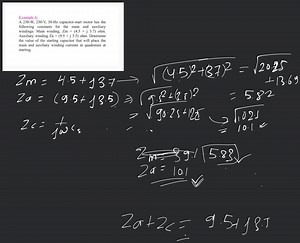 Example 6:
A 250-W, 230-V, 50-Hz capacitor-start motor has the following constants for the main and auxiliary windings: Main winding, Zm = (4.5 + j 3.7) ohm. Auxiliary winding Za = (9.5 + j 3.5) ohm. Determine the value of the starting capacitor that will place the main and auxiliary winding currents in quadrature at starting.
Zm = 4.5 + j 3.7 → √(4.5)²+(3.7)² = √20.25 + 13.69
Za = (9.5 + j3.5)
= 5.82
Zc = 1/jωCs
= 101
5.83
Za = 101
Za + Zc = 9.5 + j 3.5